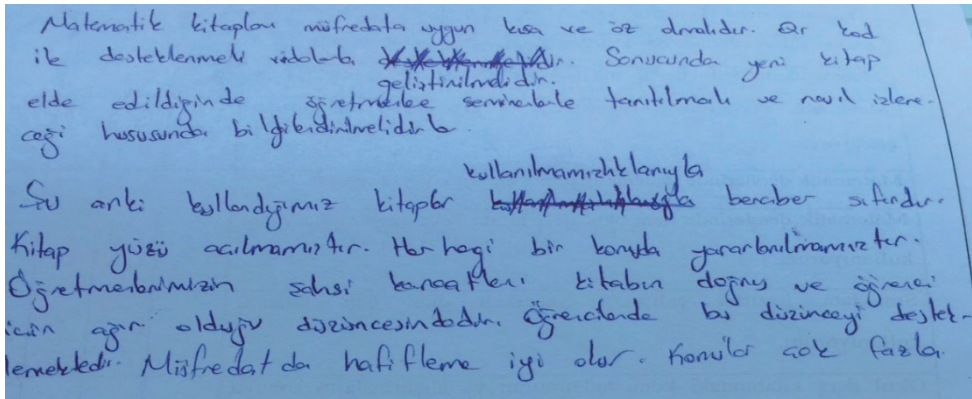 Matematik kitapları müfredata uygun kısa ve öz olmalıdır. Qr kod
ile desteklenmeli vidolarla geliştirilmelidir. Sonucunda yeni kitap
elde edildiğinde öğretmenlere seminerlerle tanıtılmalı ve nasıl izlene-
ceği hususunda bilgilendirilmelidirler.
Şu anki kullandığımız kitaplar kullanılmamışlıklarıyla beraber sıfırdır.
Kitap yüzü açılmamıştır. Her hagi bir konuda yararlanılmamıştır.
Öğretmenlerimizin şahsi kanaatleri kitabın doğru ve öğrenci
için ağır olduğu düşüncesindedir. Öğrencilerde bu düşünceyi destek-
lemektedir. Müfredat da hafifleme iyi olur. Konular çok fazla.